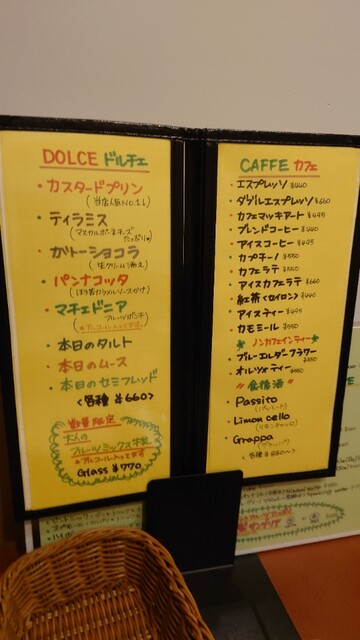 DOLCE ドルチェ
・カスタードプリン
(当店人気No.1!!)
・ティラミス
(マスカルポーネチーズ
たっぷり♥)
・ガトーショコラ
(生クリーム添え)
・パンナコッタ
・マチェドニア
フルーツポンチ
*アルコール入ってます
・本日のタルト
・本日のムース
・本日のセミフレッド
<各種 ¥660>
数量限定
大人の
フルーツミックス牛乳
*アルコール入ってます
Glass ¥770
CAFFE カフェ
・エスプレッソ ¥440
・ダブルエスプレッソ ¥660
・カフェマッキアート ¥495
・ブレンドコーヒー ¥440
・アイスコーヒー ¥495
・カプチーノ ¥550
・カフェラテ ¥560
・アイスカフェラテ ¥660
・紅茶(セイロン) ¥440
・アイスティー ¥495
・カモミール ¥550
ノンカフェインティー
・ブルーエルダーフラワー
¥550
・オルヅォティー ¥550
食後酒
・Passito
(パッシート)
・Limon cello
(リモンチェッロ)
・Grappa
(グラッパ)